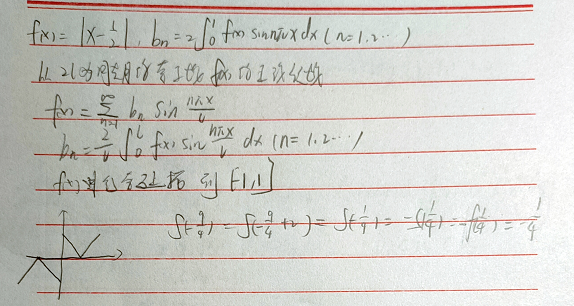 f(x) = |x - 1/2|, bn = 2∫₀¹ f(x) sin nπx dx (n=1,2…)
以2l为周期的奇函数f(x)的正弦级数
f(x) = ∑ₙ₌₁^∞ bn sin nπx/l
bn = 2/l ∫₀^l f(x) sin nπx/l dx (n=1,2…)
f(x) 到 [-1,1]
S(-9/4) = S(-9/4+2) = S(-1/4) = -S(1/4) = -f(1/4) = -1/4